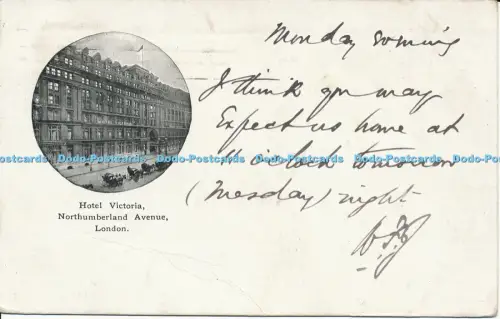 Monday evening
I think you may
Expect us home at
11 o'clock tomorrow
(Tuesday) night
Hotel Victoria,
Northumberland Avenue,
London.
Dodo-Postcards Dodo-Postcards Dodo-Postcards Dodo-Postcards Dodo-Postcards